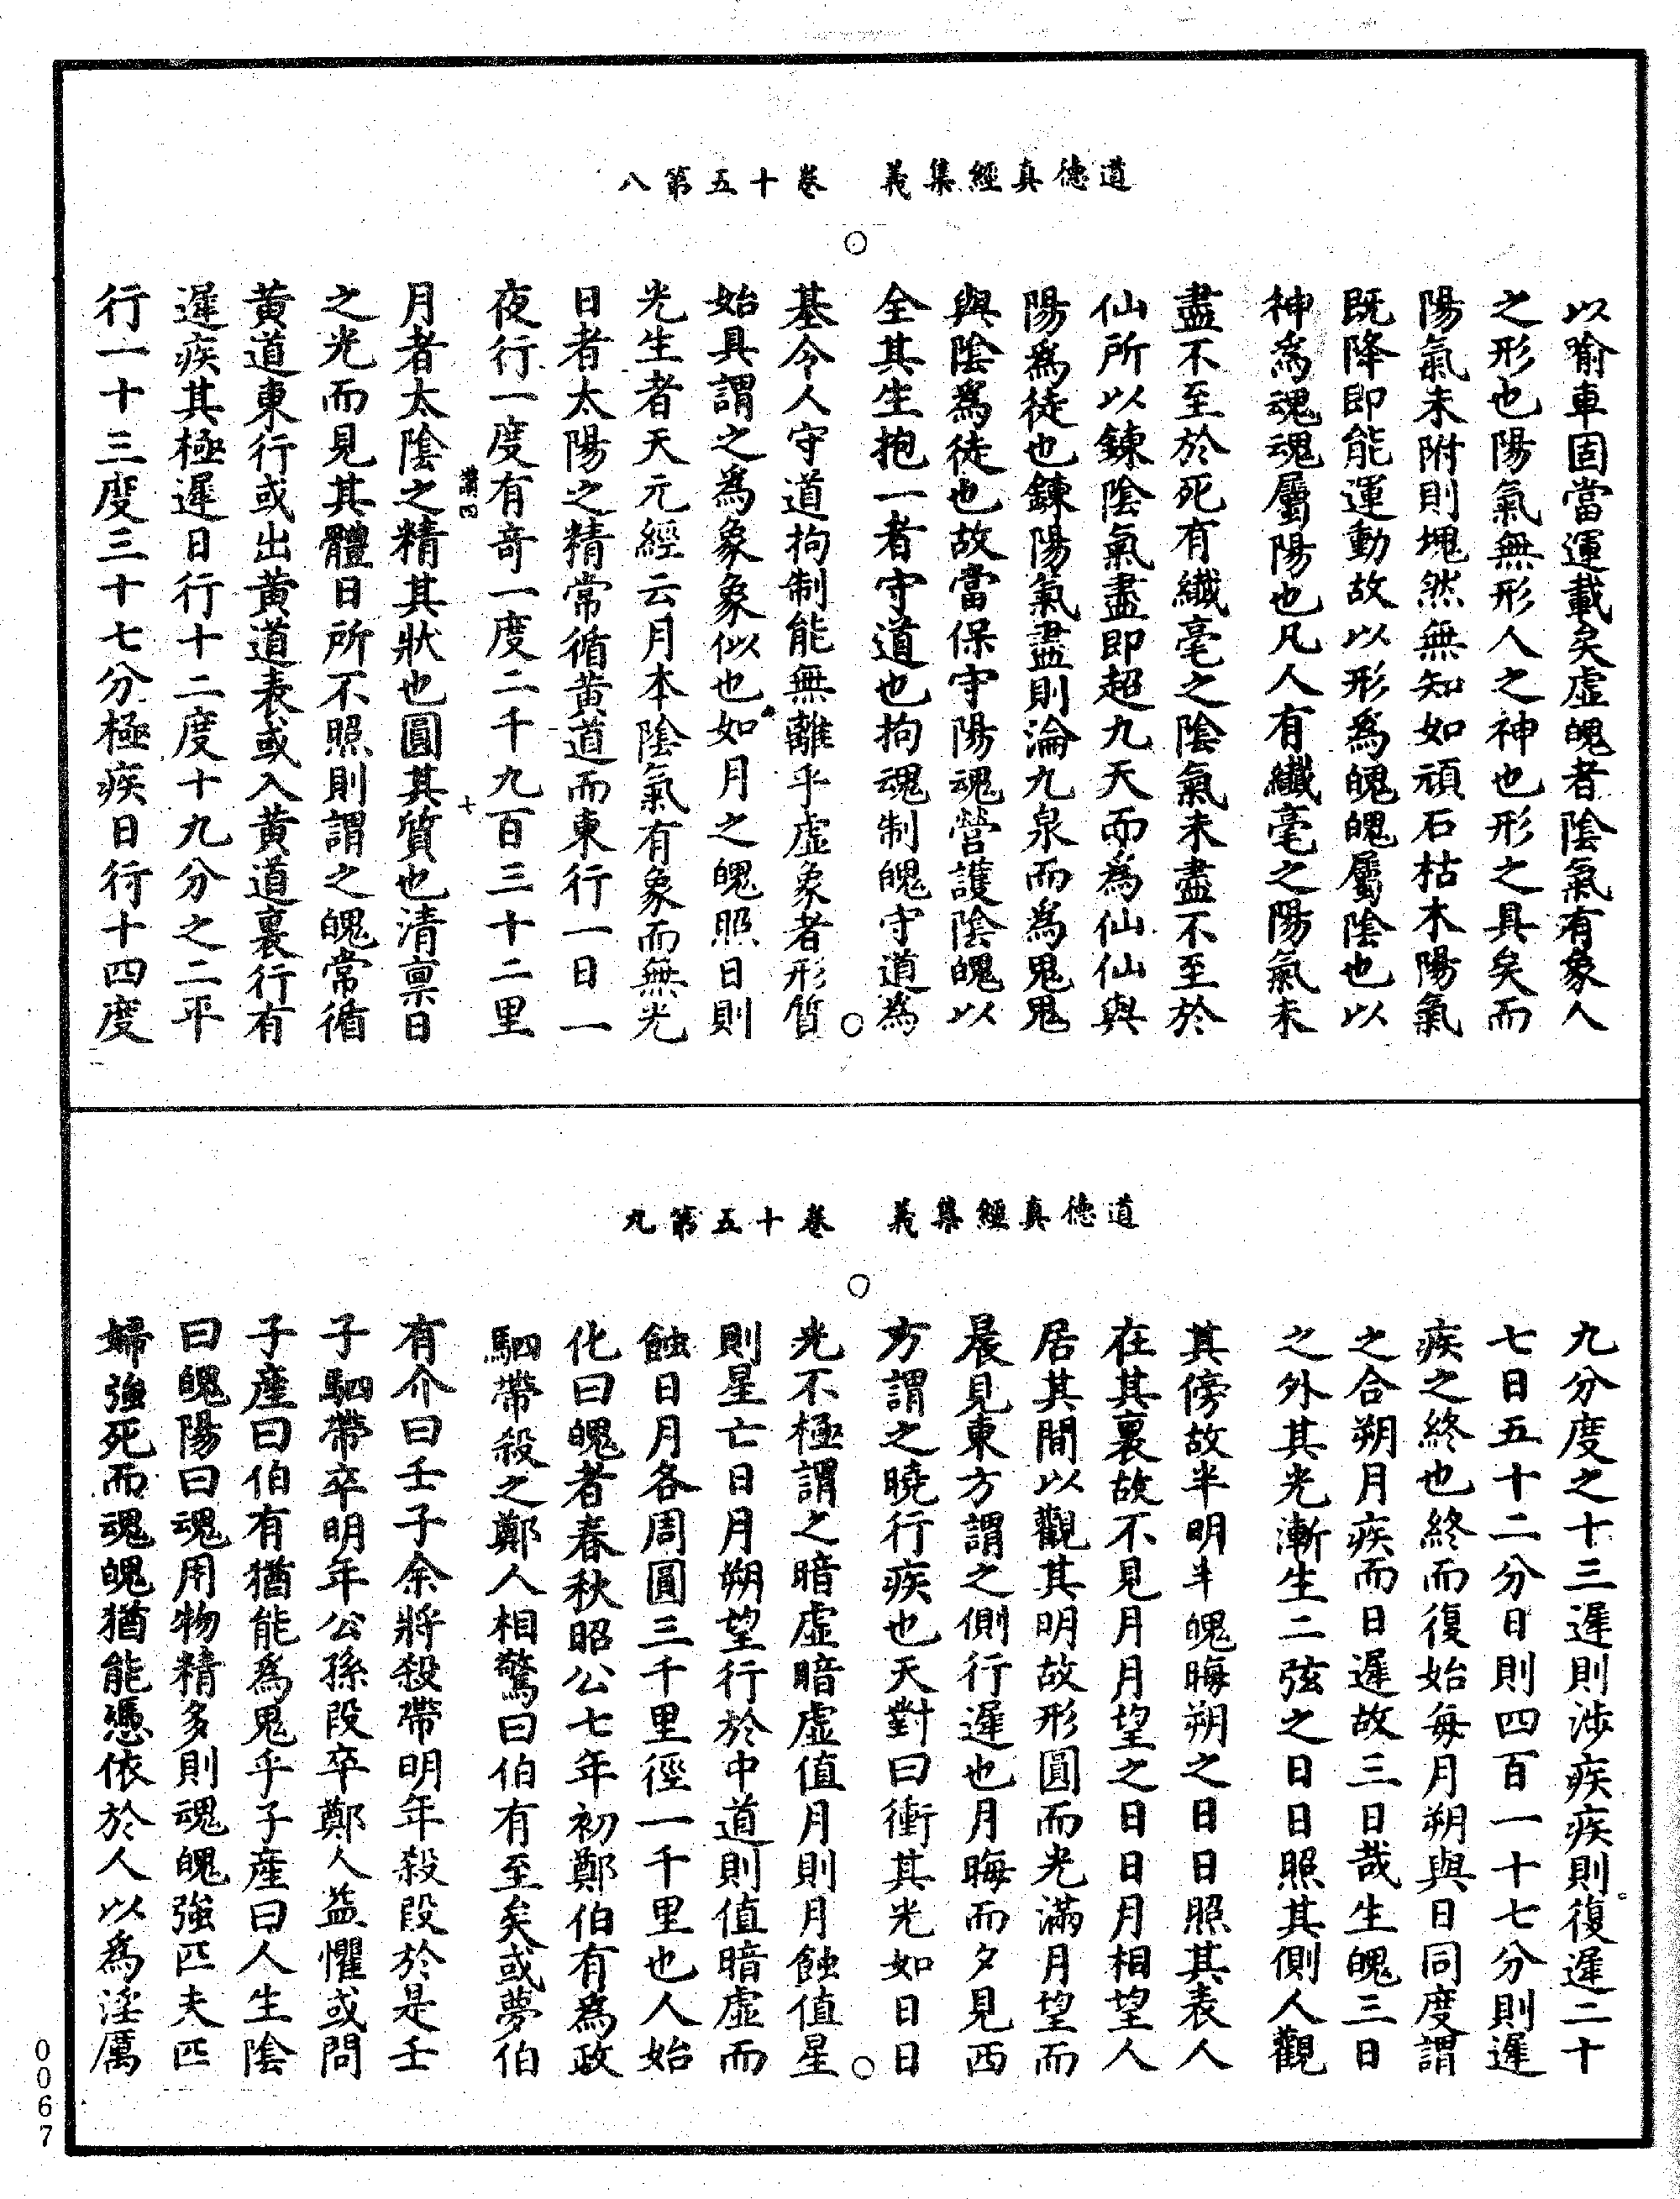 道德真經集義　卷十五第八
以喻車固當運載矣虛魄者陰氣有象人
之形也陽氣無形人之神也形之具矣而
陽氣未附則塊然無知如頑石枯木陽氣
既降即能運動故以形爲魄魄屬陰也以
神爲魂魂屬陽也凡人有纖毫之陽氣未
盡不至於死有纖毫之陰氣未盡不至於
仙所以鍊陰氣盡即超九天而爲仙仙與
陽爲徒也鍊陽氣盡則淪九泉而爲鬼鬼
與陰爲徒也故當保守陽魂營護陰魄以
全其生抱一者守道也拘魂制魄守道為
基今人守道拘制能無離乎虛象者形質
始具謂之爲象象似也如月之魄照日則
光生者天元經云月本陰氣有象而無光
日者太陽之精常循黃道而東行一日一
夜行一度有奇一度二千九百三十二里
月者太陰之精其狀也圓其質也清稟日
之光而見其體日所不照則謂之魄常循
黃道東行或出黃道表或入黃道裏行有
遲疾其極遲日行十二度十九分之二平
行一十三度三十七分極疾日行十四度
道德真經集義　卷十五第九
九分度之十三遲則涉疾疾則復遲二十
七日五十二分日則四百一十七分則遲
疾之終也終而復始每月朔與日同度謂
之合朔月疾而日遲故三日哉生魄三日
之外其光漸生二弦之日日照其側人觀
其傍故半明半魄晦朔之日日照其表人
在其裏故不見月月望之日日月相望人
居其間以觀其明故形圓而光滿月望而
晨見東方謂之側行遲也月晦而夕見西
方謂之曉行疾也天對曰衝其光如日日
光不極謂之暗虛暗虛值月則月蝕值星
則星亡日月朔望行於中道則值暗虛而
蝕日月各周圓三千里徑一千里也人始
化曰魄者春秋昭公七年初鄭伯有爲政
駟帶殺之鄭人相驚曰伯有至矣或夢伯
有介曰壬子余將殺帶明年殺段於是壬
子駟帶卒明年公孫段卒鄭人益懼或問
子產曰伯有猶能爲鬼乎子產曰人生陰
曰魄陽曰魂用物精多則魂魄強匹夫匹
婦強死而魂魄猶能憑依於人以爲淫厲
0067